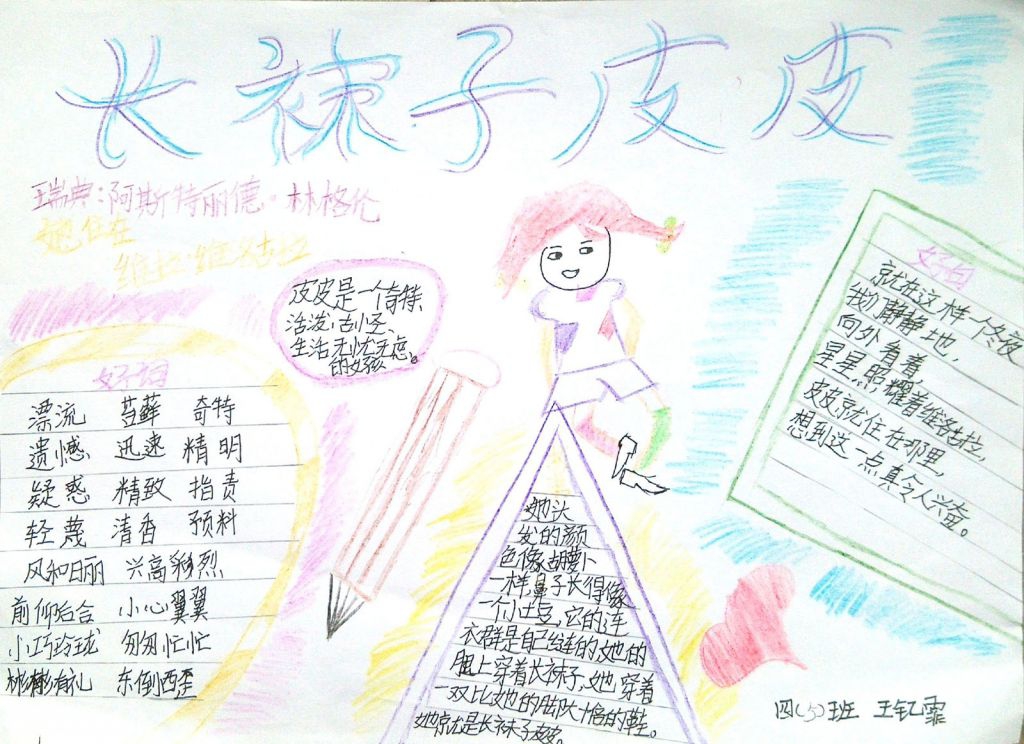 长袜子皮皮
瑞典:阿斯特丽德·林格伦
她住在
维拉·维洛拉
皮皮是一个奇怪
活泼、古小圣、
生活无忧无虑
的女孩。
好词
漂流 苔藓 奇特
遗憾 迅速 精明
疑惑 精致 指责
轻蔑 清香 预料
风和日丽 兴高彩烈
前仰后合 小心翼翼
小巧玲珑 匆匆忙忙
彬彬有礼 东倒西歪
她头
发的颜
色像胡萝卜
一样鼻子长得像
一个小土豆,它的连
衣群是自己缝的她的
腿上穿着长袜子,她穿着
一双比她的脚大十倍的鞋。
她就是长袜子皮皮。
好句
就在这样一个冬夜
我们静静地,
向外看着
星星照耀着维洛拉,
皮皮就住在那里,
想到这一点真令人兴奋。
四(5)班 王钇霏